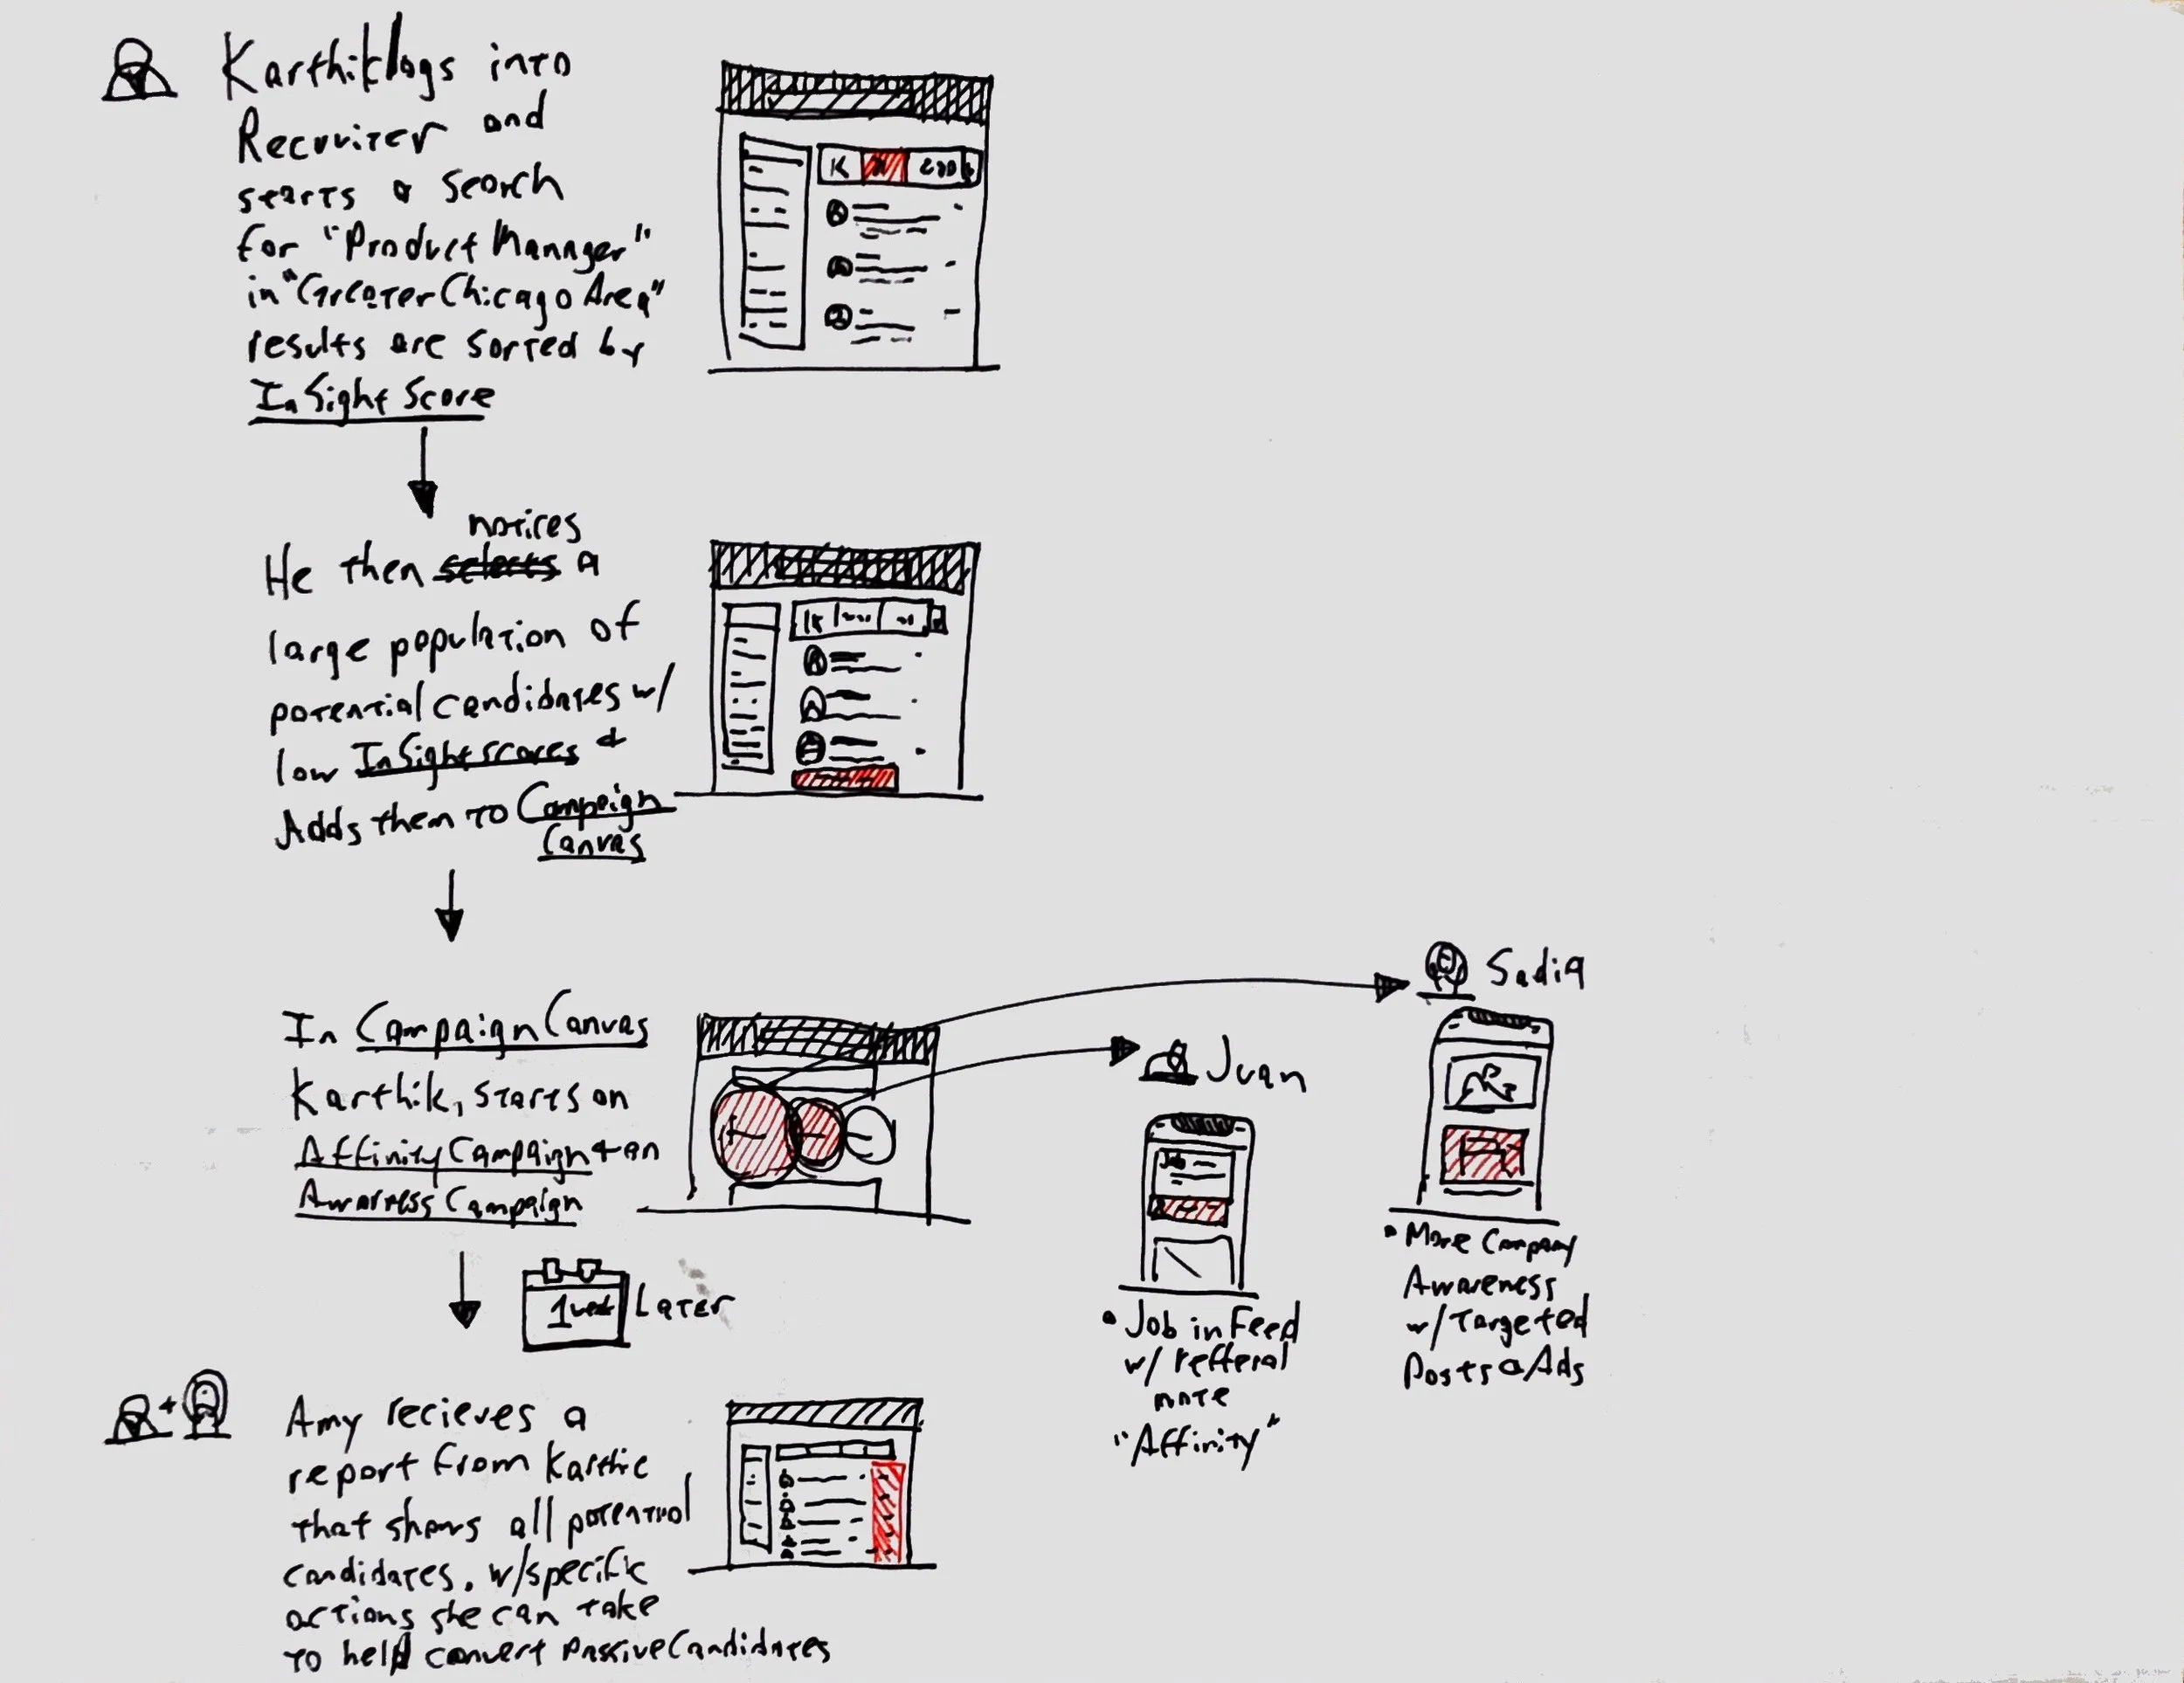 Karthik logs into
Recruiter and
starts a search
for "Product Manager"
in "Greater Chicago Area"
results are sorted by
InSight Score
notices
He then selects a
large population of
potential candidates w/
low InSight scores +
Adds them to Campaign
Canvas
In Campaign Canvas
Karthik, starts an
Affinity Campaign + an
Awarness Campaign
Sadiq
Juan
Job
• More Company
Awareness
w/ Targeted
Posts & Ads
• Job in Feed
w/ refferal
more
"Affinity"
1 week Later
Amy recieves a
report from Karthic
that shows all potential
candidates, w/specific
actions she can take
to help convert Passive Candidates